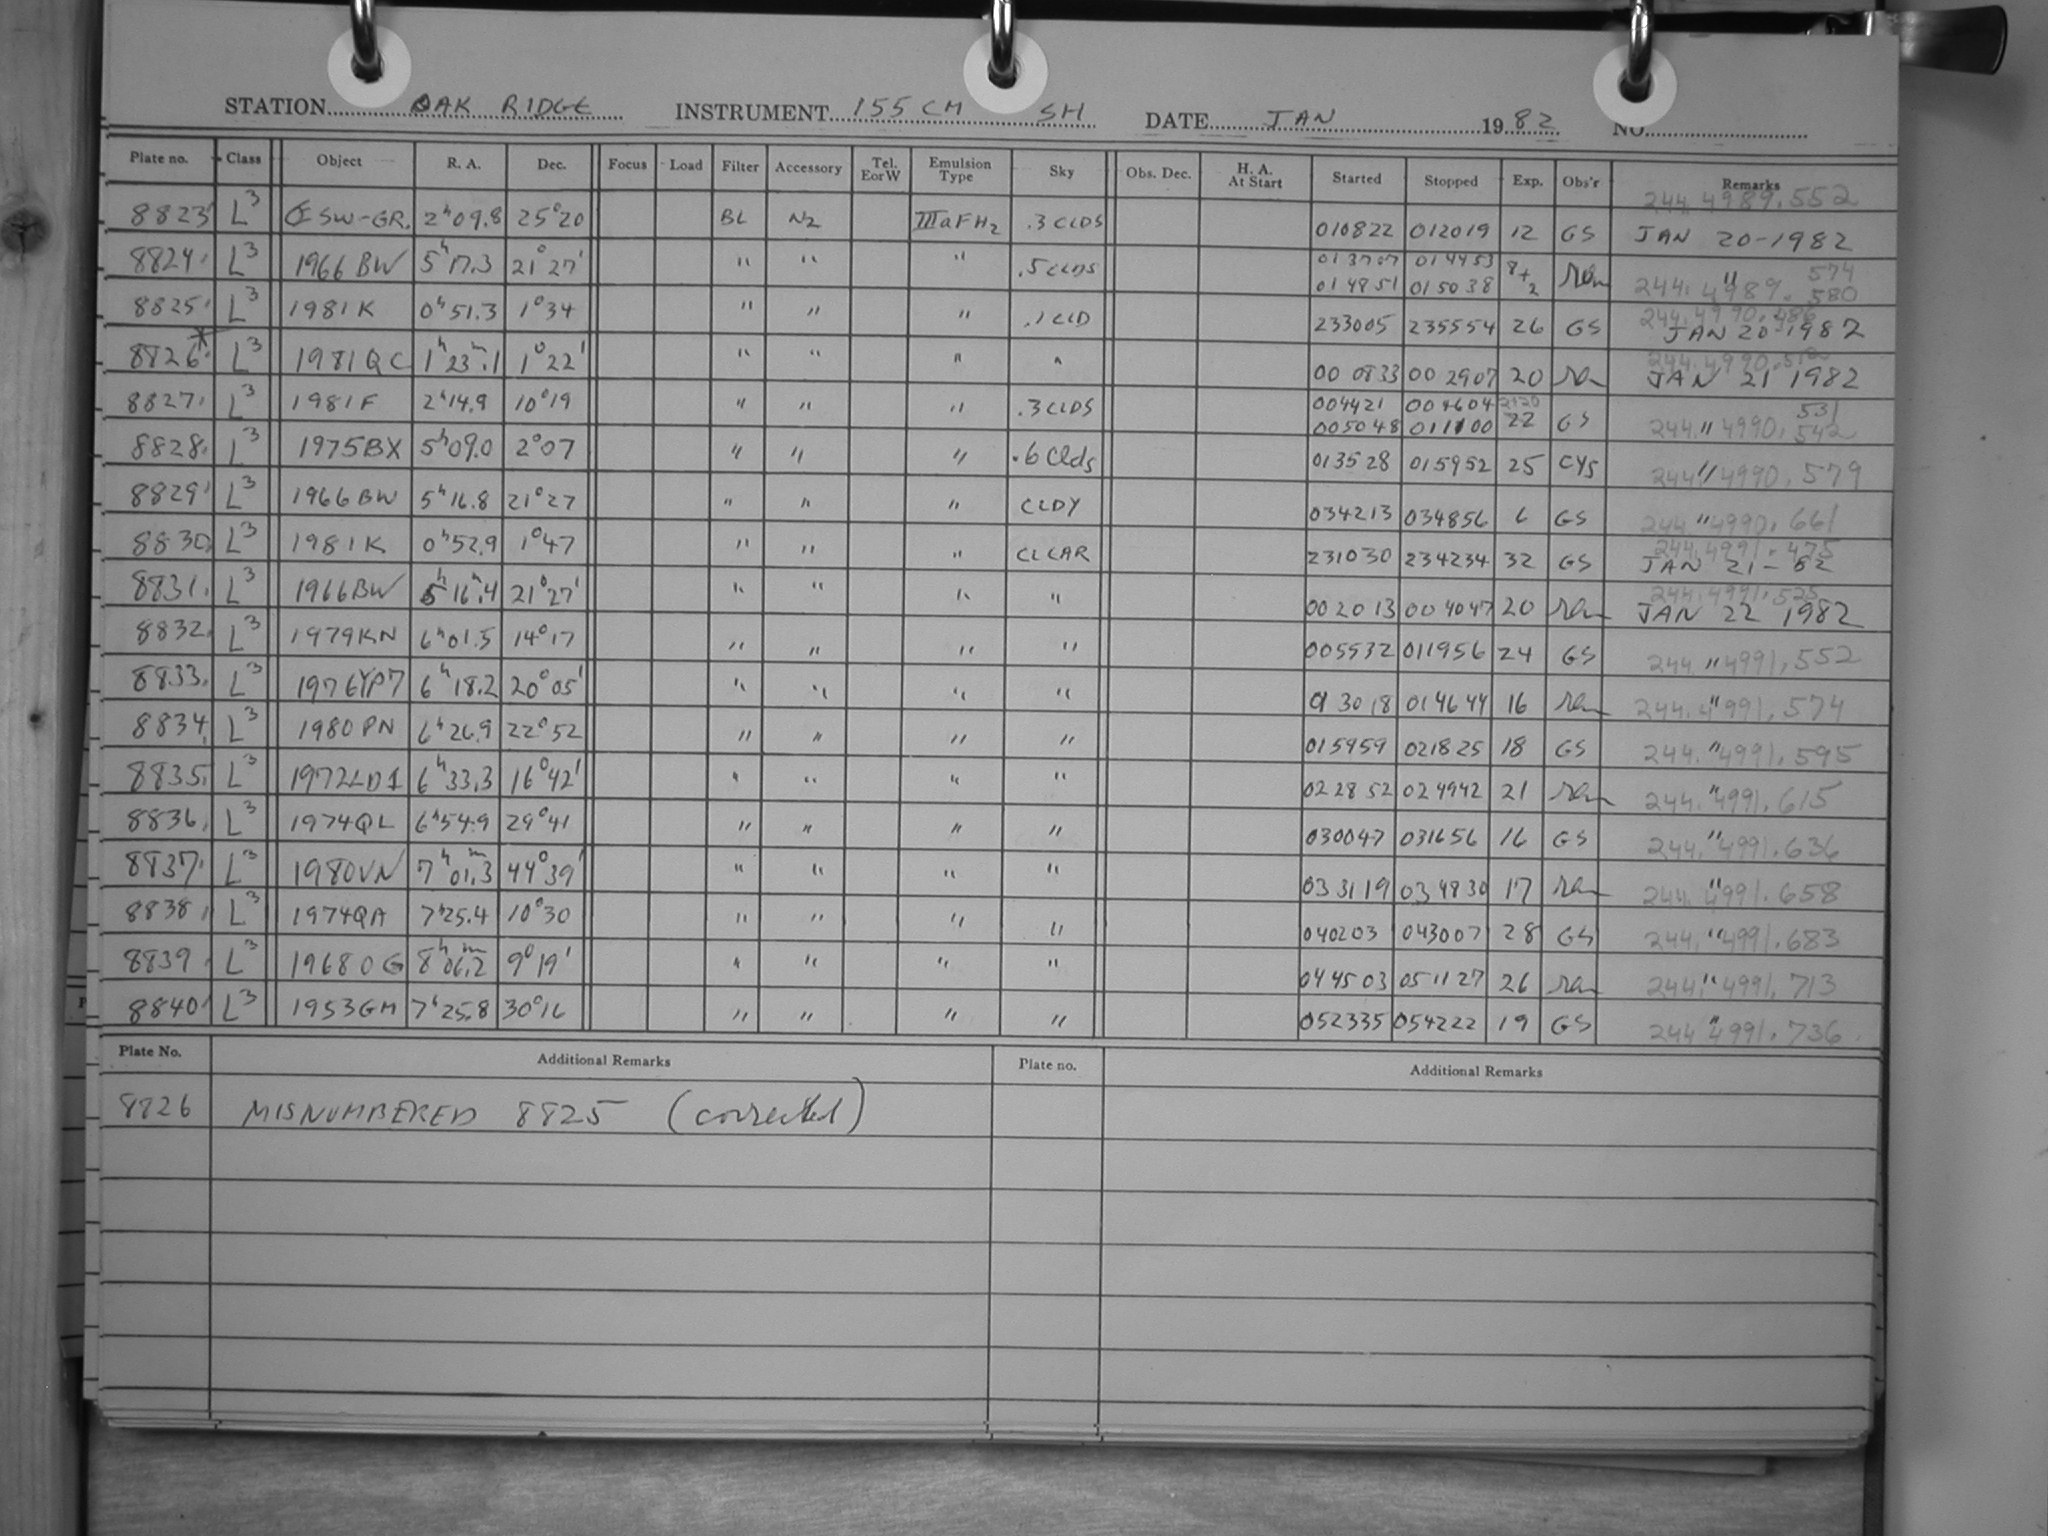 STATION OAK RIDGE INSTRUMENT 155 CM SH DATE JAN 1982 NO.
Plate no. Class Object R. A. Dec. Focus Load Filter Accessory Tel. E or W Emulsion Type Sky Obs. Dec. H. A. At Start Started Stopped Exp. Obs'r Remarks
244.4989.552
8823 L3 SW-GR. 2h09.8 25°20 BL N2 IIIaFH2 .3 CLDS 010822 012019 12 GS JAN 20-1982
8824 L3 1966 BW 5h17.3 21°27' " " " .5 CLDS 013707 014453 8+ 574
014851 015038 2 244.4989.580
8825 L3 1981K 0h51.3 1°34 " " " .1 CLD 233005 235554 26 GS 244.4990.486 JAN 20 1982
8826* L3 1981QC 1h23m.1 1°22' " " " " 000833 002907 20 ren 244.4990.512 JAN 21 1982
8827 L3 1981F 2h14.9 10°19 " " " .3 CLDS 004421 004604 531
005048 011100 22 GS 244." 4990.542
8828 L3 1975BX 5h09.0 2°07 " " " .6 Clds 013528 015952 25 CYS 244." 4990.579
8829 L3 1966BW 5h16.8 21°27 " " " CLDY 034213 034856 6 GS 244." 4990.661
8830 L3 1981K 0h52.9 1°47 " " " CLEAR 231030 234234 32 GS 244.4991.475 JAN 21-82
8831 L3 1966BW 5h16m.4 21°27' " " " " 002013 004047 20 ren 244.4991.525 JAN 22 1982
8832 L3 1979KN 6h01.5 14°17 " " " " 005532 011956 24 GS 244." 4991.552
8833 L3 1976YP7 6h18.2 20°05' " " " " 013018 014644 16 ren 244." 4991.574
8834 L3 1980PN 6h26.9 22°52 " " " " 015959 021825 18 GS 244." 4991.595
8835 L3 1972LD1 6h33.3 16°42' " " " " 022852 024942 21 ren 244." 4991.615
8836 L3 1974QL 6h54.9 29°41 " " " " 030047 031656 16 GS 244." 4991.636
8837 L3 1980VN 7h01m.3 44°39' " " " " 033119 034830 17 ren 244." 4991.658
8838 L3 1974QA 7h25.4 10°30 " " " " 040203 043007 28 GS 244." 4991.683
8839 L3 1968OG 8h06m.2 9°19' " " " " 044503 051127 26 ren 244." 4991.713
8840 L3 1953GM 7h25.8 30°16 " " " " 052335 054222 19 GS 244." 4991.736
Plate No. Additional Remarks Plate no. Additional Remarks
8826 MISNUMBERED 8825 (corrected)